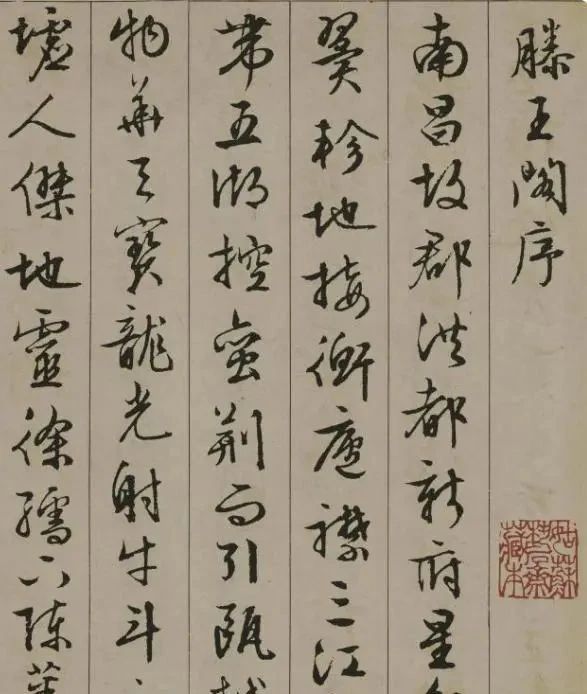 滕王閣序
南昌故郡洪都新府星
翼軫地接衡廬襟三江
帶五湖控蠻荊而引甌越
物華天寶龍光射牛斗
墟人傑地靈徐孺下陳蕃